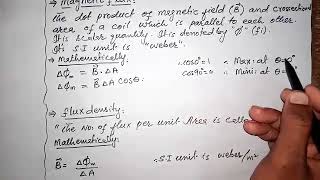 → Magnetic flux:
the dot product of magnetic field (B⃗) and crossectional
area of a coil which is parallel to each other.
It is scalar quantity. It is denoted by ϕ (fi).
It's S.I unit is "weber".
→ Mathematically:
Δϕm = B⃗ · ΔA cos0°=1 " Max: at θ=0°
Δϕm = B⃗ · ΔA cosθ. cos90°=0 " Mini: at θ=
→ flux density:
"The No: of flux per unit Area is called
Mathematically:
B⃗ = Δϕm / ΔA S.I unit is weber/m²